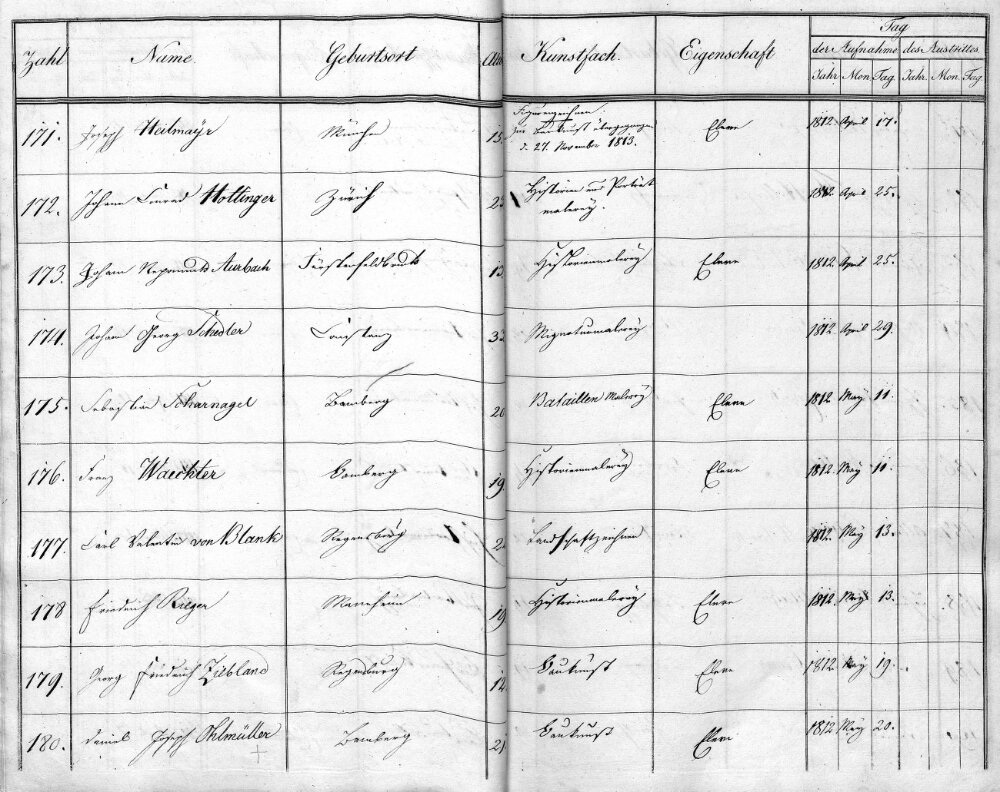 Zahl Name. Geburtsort Alter Kunstfach. Eigenschaft Tag
der Aufnahme des Austrittes
Jahr Mon. Tag. Jahr. Mon. Tag
171. Joseph Heilmayr München 15. Figurenzeichnen. Eleve 1812. April 17.
zur Baukunst übergegangen
d. 27. November 1813.
172. Johann Conrad Hottinger Zürich 2 Historien und Porträt 1812 April 25.
malerey.
173. Johann Nepomuck Aurbach Fürstenfeldbruck 13 Historienmalerey Eleve 1812 April 25.
174. Johann Georg Schedler Constanz 3 Mignaturmalerey 1812 April 29.
175. Sebastian Scharnagel Bamberg 20 Bataillen Malerey Eleve 1812 May 11.
176. Franz Waechter Bamberg 19 Historienmalerey Eleve 1812. May 11.
177. Carl Valentin von Blank Regensburg 2 Landschaftzeichnen 1812. May 13.
178 Friedrich Rieger Manheim 19 Historienmalerey Eleve 1812 May 13.
179. Georg Friedrich Ziebland Regensburg 12 Baukunst Eleve 1812 May 19.
180. Daniel Joseph Ohlmüller Bamberg 21 Baukunst Eleve 1812 May 20.